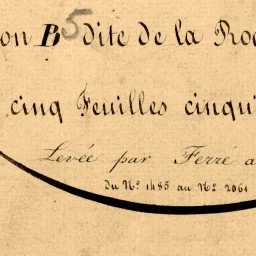 on B5 dite de la Roc
cinq Feuilles cinqui
Levée par Ferré a
Du Nº 1485 au Nº 2061